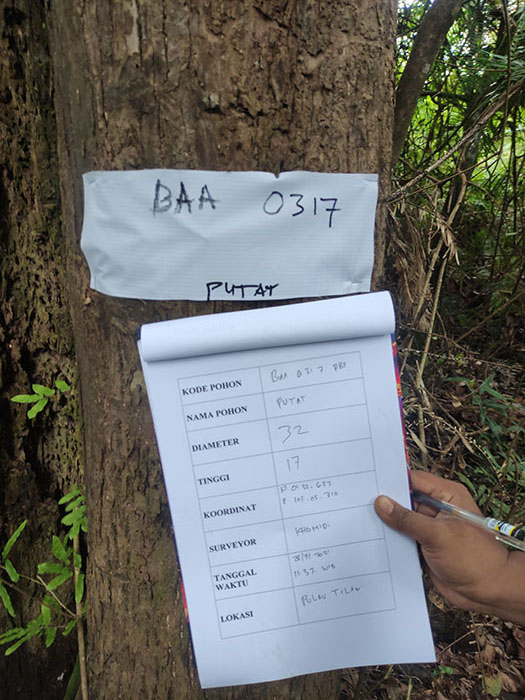 BAA 0317
PUTAT
KODE POHON BAA 0317
NAMA POHON PUTAT
DIAMETER 32
TINGGI 17
KOORDINAT
SURVEYOR KHOMIDI
TANGGAL
WAKTU
LOKASI PULAU TILAN